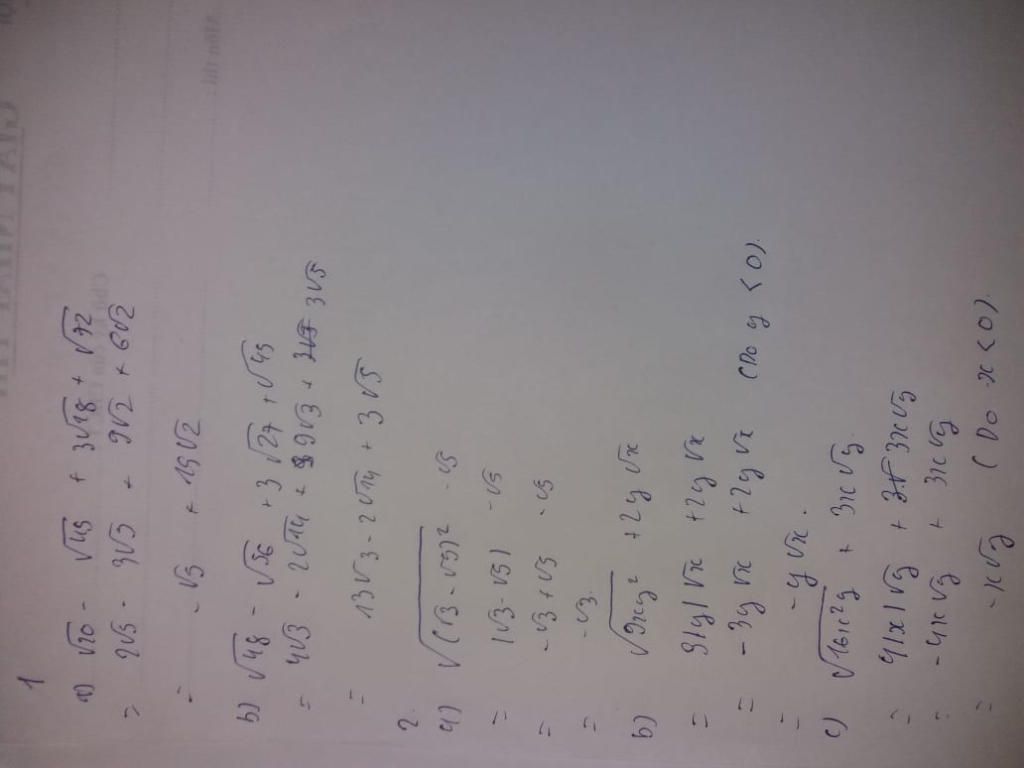 1
a) √20 - √45 + 3√18 + √72
= 2√5 - 3√5 + 9√2 + 6√2
= -√5 + 15√2
b) √48 - √56 + 3√27 + √45
= 4√3 - 2√14 + 9√3 + 3√5
= 13√3 - 2√14 + 3√5
2.
a) √(√3 - √5)² - √5
= |√3 - √5| - √5
= -√3 + √5 - √5
= -√3.
b) √9xy² + 2y√x
= 3|y|√x + 2y√x
= -3y√x + 2y√x (Do y < 0).
= -y√x.
c) √16x²y + 3x√y.
= 4|x|√y + 3x√y
= -4x√y + 3x√y
= -x√y (Do x < 0).